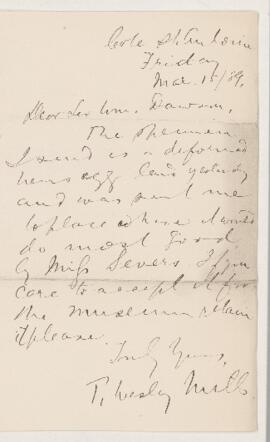 Cote St Antoine
Friday
Mar. 15/89.
Dear Sir Wm. Dawson,
The specimen
I send is a deformed
hen's egg laid yesterday
and was sent me
to place where it would
do most good
by Miss Severs. If you
care to accept it for
the museum retain
it please.
Truly Yours,
T. Wesley Mills.